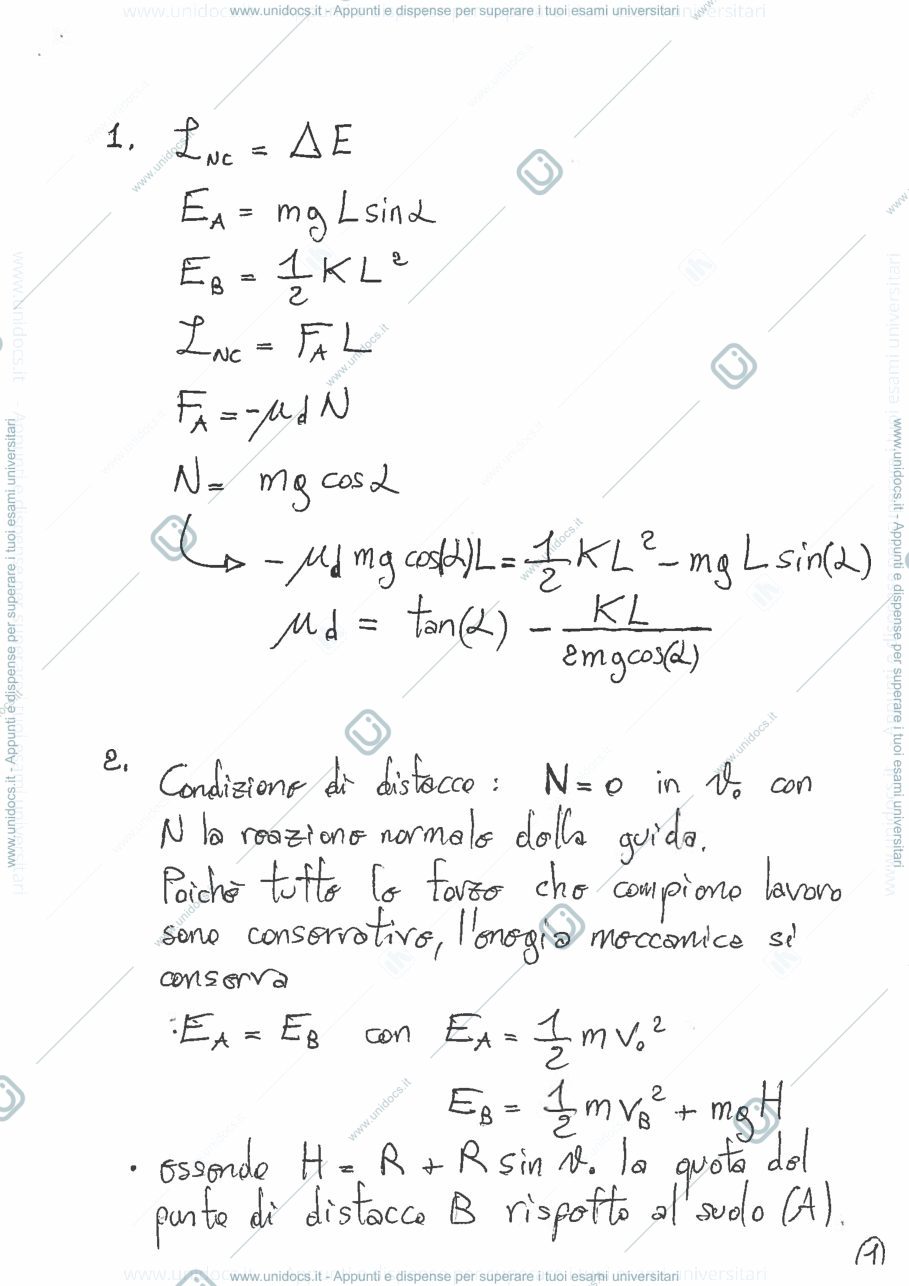 www.unidocs.it - Appunti e dispense per superare i tuoi esami universitari
1. L_NC = ΔE
E_A = mg L sin α
E_B = 1/2 K L²
L_NC = F_A L
F_A = -μ_d N
N = mg cos α
→ - μ_d mg cos(α) L = 1/2 K L² - mg L sin(α)
μ_d = tan(α) - KL / 2mg cos(α)
2. Condizione di distacco : N = 0 in ϑ₀ con
N la reazione normale della guida.
Poichè tutte le forze che compiono lavoro
sono conservative, l'energia meccanica si
conserva
: E_A = E_B con E_A = 1/2 m v₀²
E_B = 1/2 m v_B² + mg H
• essendo H = R + R sin ϑ₀ la quota del
punto di distacco B rispetto al suolo (A).
(1)
www.unidocs.it - Appunti e dispense per superare i tuoi esami universitari
www.unidocs.it - Appunti e dispense per superare i tuoi esami universitari
www.unidocs.it - Appunti e dispense per superare i tuoi esami universitari